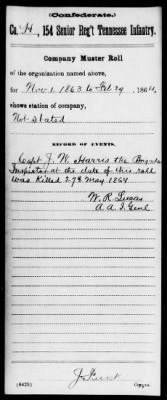 (Confederate.)
Co. H, 154 Senior Reg't Tennessee Infantry.
Company Muster Roll
of the organization named above,
for Nov 1, 1863 to Feb 29, 1864,
shows station of company,
Not Stated
RECORD OF EVENTS.
Capt J. W. Harris the Brigade
Inspector at the date of this roll
was Killed 27th May 1864
W. R. Lucas
A. A. I. Genl
(642B)
Copyist.